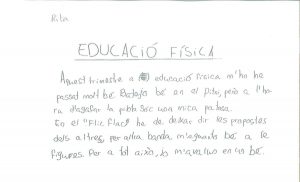 Rita
EDUCACIÓ FÍSICA
Aquest trimestre a educació física m'ho he
passat molt bé. Bastoja bé en el Pitxi, però a l'ho
ra d'agafar la pilota sóc una mica patosa.
En el "Flic Flac" he de deixar dir les propostes
dels altres, per altra banda, m'aguanto bé a le
figures. Per a tot això, jo m'avaluo en un bé.